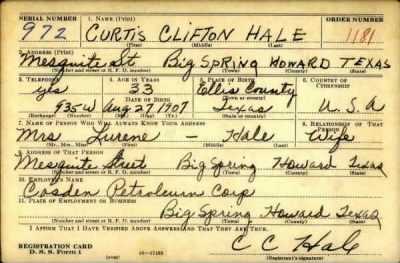 SERIAL NUMBER 1. NAME (Print) ORDER NUMBER
972 CURTIS CLIFTON HALE 1181
(First) (Middle) (Last)
2. ADDRESS (Print)
Mesquite St Big Spring Howard Texas
(Number and street or R. F. D. number) (Town) (County) (State)
3. TELEPHONE 4. AGE IN YEARS 5. PLACE OF BIRTH 6. COUNTRY OF CITIZENSHIP
yes 33 Ellis County
DATE OF BIRTH (Town or county)
935W Aug 27 1907 Texas U.S.A
(Exchange) (Number) (Mo.) (Day) (Yr.) (State or country)
7. NAME OF PERSON WHO WILL ALWAYS KNOW YOUR ADDRESS 8. RELATIONSHIP OF THAT PERSON
Mrs Lurene - Hale Wife
(Mr., Mrs., Miss) (First) (Middle) (Last)
9. ADDRESS OF THAT PERSON
Mesquite Street Big Spring Howard Texas
(Number and street or R. F. D. number) (Town) (County) (State)
10. EMPLOYER'S NAME
Cosden Petroleum Corp
11. PLACE OF EMPLOYMENT OR BUSINESS
Big Spring Howard Texas
(Number and street or R. F. D. number) (Town) (County) (State)
I AFFIRM THAT I HAVE VERIFIED ABOVE ANSWERS AND THAT THEY ARE TRUE.
REGISTRATION CARD C C Hale
D. S. S. Form 1 (Registrant's signature)